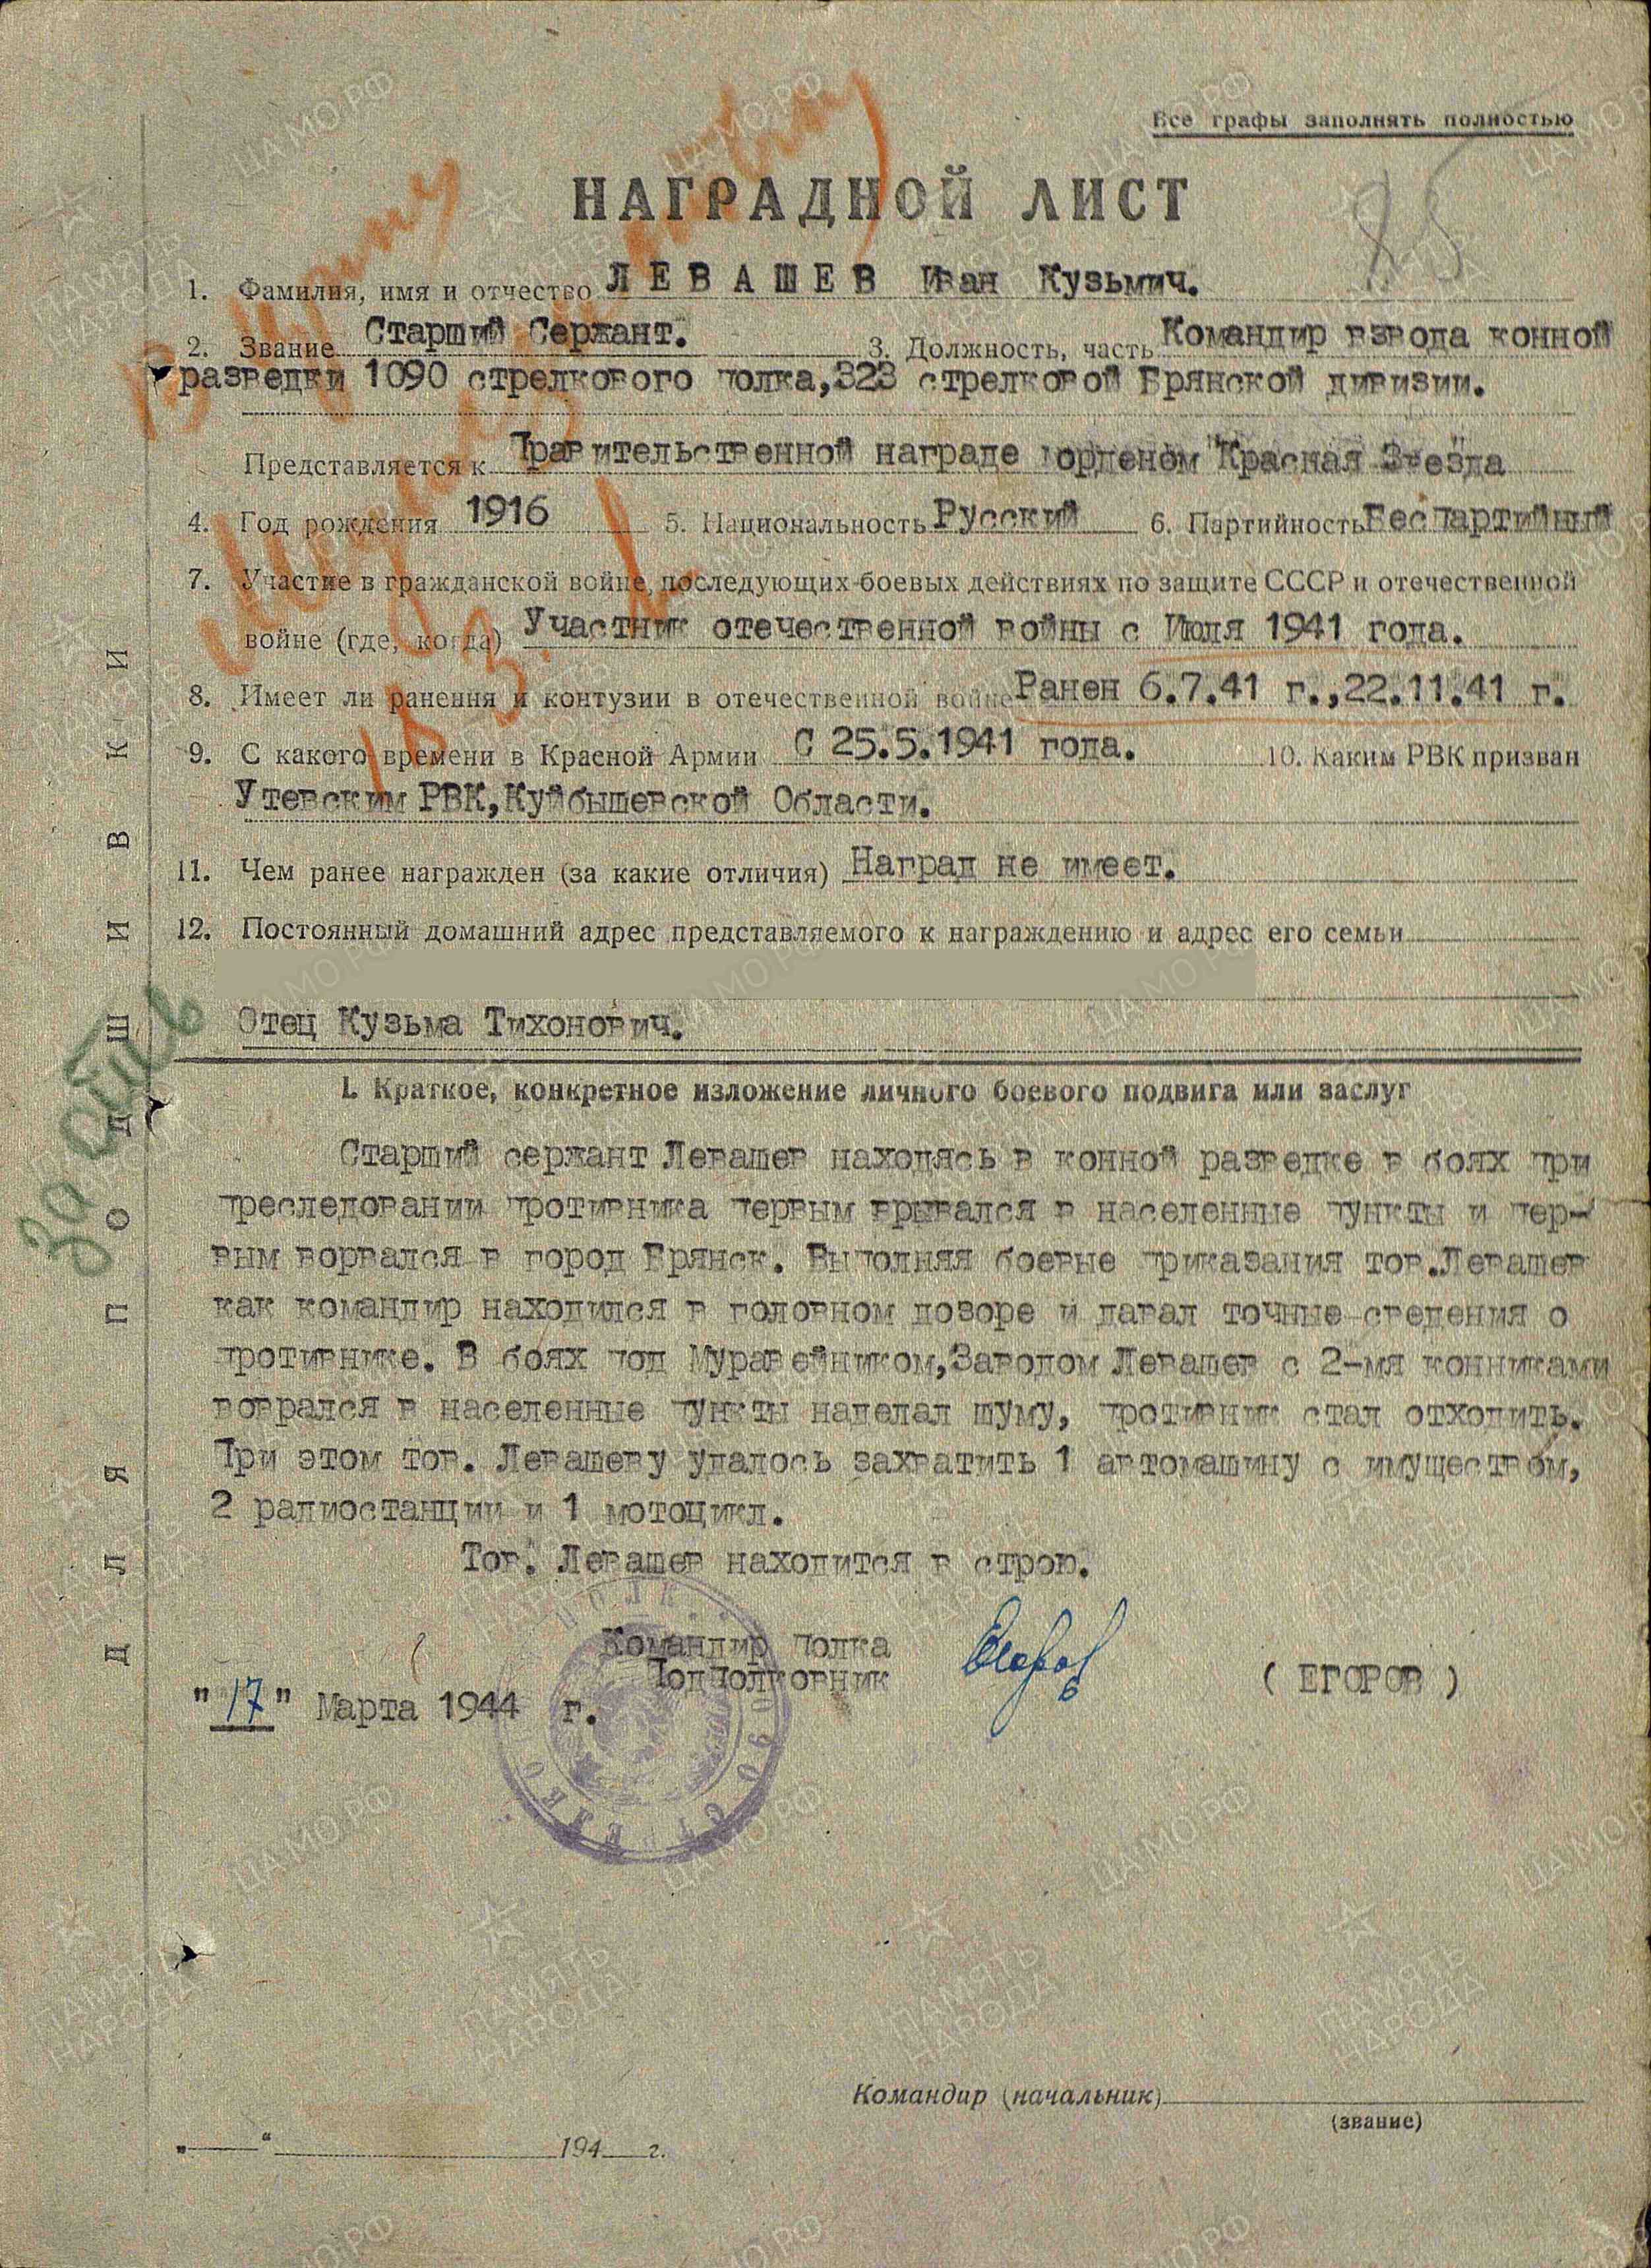 Все графы заполнять полностью
НАГРАДНОЙ ЛИСТ
1. Фамилия, имя и отчество ЛЕВАШЕВ Иван Кузьмич.
2. Звание Старший Сержант. 3. Должность, часть Командир взвода конной
разведки 1090 стрелкового полка,323 стрелковой Брянской дивизии.
Представляется к Правительственной награде орденом "Красная Звезда
4. Год рождения 1916 5. Национальность Русский 6. Партийность Беспартийный
7. Участие в гражданской войне, последующих боевых действиях по защите СССР и отечественной
войне (где, когда) Участник отечественной войны с Июля 1941 года.
8. Имеет ли ранения и контузии в отечественной войне Ранен 6.7.41 г.,22.11.41 г.
9. С какого времени в Красной Армии С 25.5.1941 года. 10. Каким РВК призван
Утевским РВК,Куйбышевской Области.
11. Чем ранее награжден (за какие отличия) Наград не имеет.
12. Постоянный домашний адрес представляемого к награждению и адрес его семьи
Отец Кузьма Тихонович.
I. Краткое, конкретное изложение личного боевого подвига или заслуг
Старший сержант Левашев находясь в конной разведке в боях при
преследовании противника первым врывался в населенные пункты и пер-
вым ворвался в город Брянск. Выполняя боевые приказания тов.Левашев
как командир находился в головном дозоре и давал точные сведения о
противнике. В боях под Муравейником,Заводом Левашев с 2-мя конниками
воврался в населенные пункты наделал шуму, противник стал отходить.
При этом тов. Левашеву удалось захватить 1 автомашину с имуществом,
2 радиостанции и 1 мотоцикл.
Тов. Левашев находится в строю.
Командир полка
Подполковник
( ЕГОРОВ )
"17" Марта 1944 г.
Командир (начальник)
(звание)
"___" 194__ г.
ДЛЯ ПОДШИВКИ
ЦАМО.РФ
ПАМЯТЬ НАРОДА